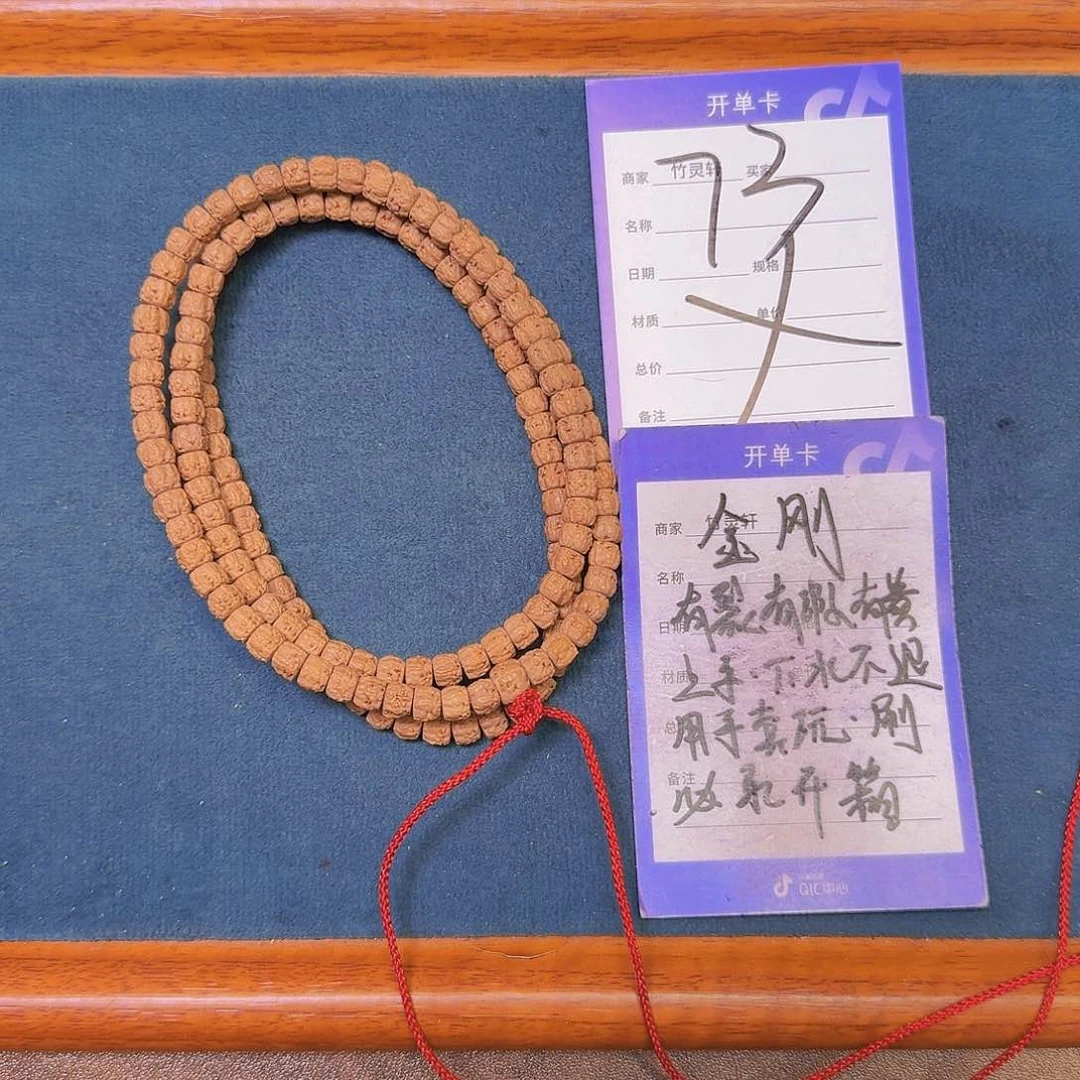 开单卡
商家 竹灵轩 买家
名称
日期 规格
材质 单价
总价
备注
开单卡
商家 竹灵轩
金刚
名称
有裂有瑕有黄
日期
材质
上手·下水不退
用手卖玩·刷
备注
收录开箱
QIC中心